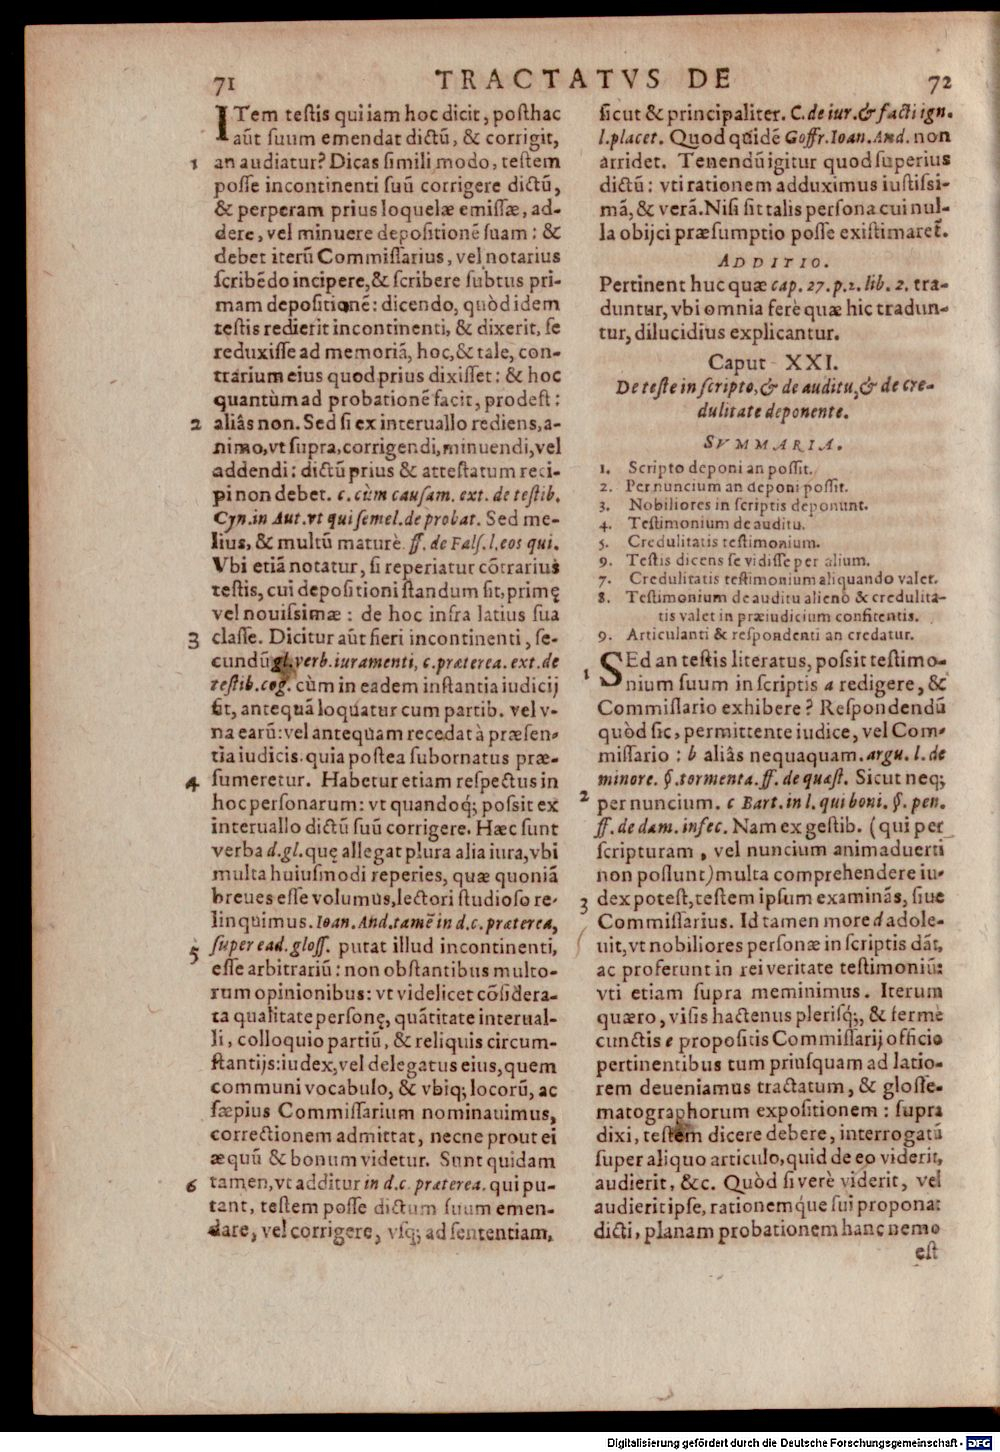 71 TRACTATVS DE 72
ITem testis qui iam hoc dicit, posthac
aūt suum emendat dictū, & corrigit,
1 an audiatur? Dicas simili modo, testem
posse incontinenti suū corrigere dictū,
& perperam prius loquelæ emissæ, ad-
dere, vel minuere depositionē suam: &
debet iterū Commissarius, vel notarius
scribēdo incipere, & scribere subtus pri-
mam depositionē: dicendo, quòd idem
testis redierit incontinenti, & dixerit, se
reduxisse ad memoriā, hoc, & tale, con-
trarium eius quod prius dixisset: & hoc
quantùm ad probationē facit, prodest:
2 aliâs non. Sed si ex interuallo rediens, a-
nimo, vt supra, corrigendi, minuendi, vel
addendi: dictū prius & attestatum reci-
pi non debet. c. cùm causam. ext. de testib.
Cyn. in Aut. vt qui semel. de probat. Sed me-
lius, & multū maturè. ff. de Fals. l. eos qui.
Vbi etiā notatur, si reperiatur cōtrarius
testis, cui depositioni standum sit, primę
vel nouissimæ: de hoc infra latius sua
3 classe. Dicitur aūt fieri incontinenti, se-
cundū gl. verb. iuramenti, c. præterea. ext. de
testib. cog. cùm in eadem instantia iudicij
fit, antequā loquatur cum partib. vel v-
na earū: vel antequam recedat à præsen-
tia iudicis. quia postea subornatus præ-
4 sumeretur. Habetur etiam respectus in
hoc personarum: vt quandoq; possit ex
interuallo dictū suū corrigere. Hæc sunt
verba d. gl. quę allegat plura alia iura, vbi
multa huiusmodi reperies, quæ quoniā
breues esse volumus, lectori studioso re-
linquimus. Ioan. And. tamē in d. c. præterea,
5 super ead. gloss. putat illud incontinenti,
esse arbitrariū: non obstantibus multo-
rum opinionibus: vt videlicet cōsidera-
ta qualitate personę, quātitate interual-
li, colloquio partiū, & reliquis circum-
stantijs: iudex, vel delegatus eius, quem
communi vocabulo, & vbiq; locorū, ac
sæpius Commissarium nominauimus,
correctionem admittat, necne prout ei
æquū & bonum videtur. Sunt quidam
6 tamen, vt additur in d. c. præterea. qui pu-
tant, testem posse dictum suum emen-
dare, vel corrigere, vsq; ad sententiam,
sicut & principaliter. C. de iur. & facti ign.
l. placet. Quod quidē Goffr. Ioan. And. non
arridet. Tenendū igitur quod superius
dictū: vti rationem adduximus iustissi-
mā, & verā. Nisi sit talis persona cui nul-
la obijci præsumptio posse existimaret̃.
ADDITIO.
Pertinent huc quæ cap. 27. p. 2. lib. 2. tra-
duntur, vbi omnia ferè quæ hic tradun-
tur, dilucidius explicantur.
Caput XXI.
De teste in scripto, & de auditu, & de cre-
dulitate deponente.
SVMMARIA.
1. Scripto deponi an possit.
2. Per nuncium an deponi possit.
3. Nobiliores in scriptis deponunt.
4. Testimonium de auditu.
5. Credulitatis testimonium.
9. Testis dicens se vidisse per alium.
7. Credulitatis testimonium aliquando valet.
8. Testimonium de auditu alieno & credulita-
tis valet in præiudicium confitentis.
9. Articulanti & respondenti an credatur.
1 SEd an testis literatus, possit testimo-
nium suum in scriptis a redigere, &
Commissario exhibere? Respondendū
quòd sic, permittente iudice, vel Com-
missario: b aliâs nequaquam. argu. l. de
minore. §. tormenta. ff. de quæst. Sicut neq;
2 per nuncium. c Bart. in l. qui boni. §. pen.
ff. de dam. infec. Nam ex gestib. (qui per
scripturam, vel nuncium animaduerti
non possunt) multa comprehendere iu-
3 dex potest, testem ipsum examinās, siue
Commissarius. Id tamen more d adole-
uit, vt nobiliores personæ in scriptis dāt,
ac proferunt in rei veritate testimoniū:
vti etiam supra meminimus. Iterum
quæro, visis hactenus plerisq;, & ferme
cunctis e propositis Commissarij officio
pertinentibus tum priusquam ad latio-
rem deueniamus tractatum, & glosse-
matographorum expositionem: supra
dixi, testem dicere debere, interrogatū
super aliquo articulo, quid de eo viderit,
audierit, &c. Quòd si verè viderit, vel
audierit ipse, rationemq́ue sui proponat
dicti, planam probationem hanc nemo
est
Digitalisierung gefördert durch die Deutsche Forschungsgemeinschaft - DFG